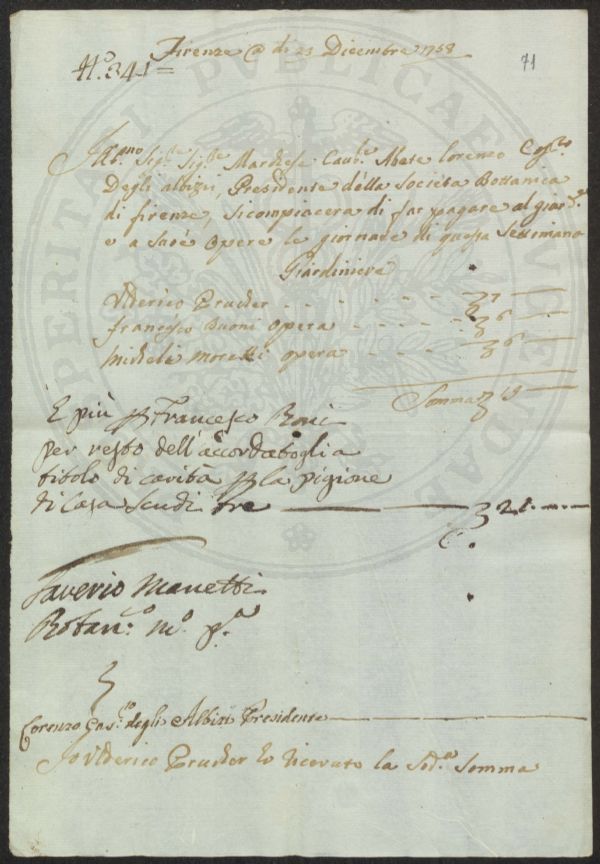 Firenze @ di 23 Dicembre 1758
N.° 341 =
71
Ill.mo Sig.re Sig.re Marchese Cav.re Abate Lorenzo
Degli Albizi, Presidente della Società Bottanica
di firenze, si compiacerà di far pagare al giar.re
e a sue opere le giornate di questa Settimana
Giardiniere
Uderico Prucker - - - - - - 7 —
francesco Buoni opera - - - - 6 —
michele moretti opera - - - - 6 —
Somma 19 —
E più p Francesco Boni
per resto dell'accordatogli a
titolo di carità p la pigione
di Casa Scudi tre — — 21. - - -
Saverio Manetti
Botan.co m.o p.a
Lorenzo Gas.ro degli Albizi Presidente
Io Uderico Prucker ho ricevuto la Sud.a Somma
PERITA PVBLICAE